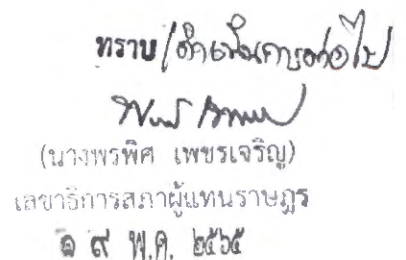 ทราบ/ดำเนินการต่อไป
(นางพรพิศ เพชรเจริญ)
เลขาธิการสภาผู้แทนราษฎร
๑๙ พ.ค. ๒๕๖๕